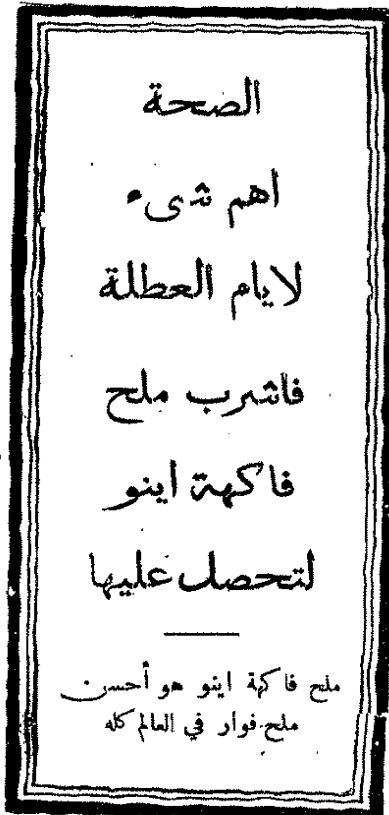 الصحة
اهم شىء
لايام العطلة
فاشرب ملح
فاكهة اينو
لتحصل عليها
ملح فاكهة اينو هو أحسن
ملح فوار في العالم كله